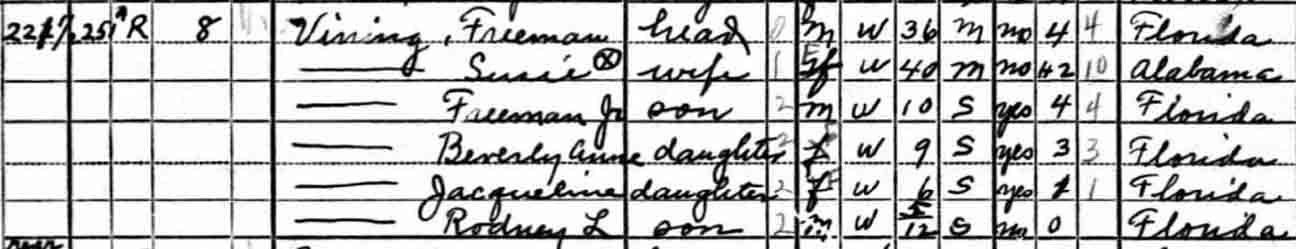 251 R 8 Vining, Freeman head 0 m W 36 M no 4 4 Florida
— Susie ⓧ wife 1 f W 40 m no H2 10 Alabama
— Freeman Jr son 2 m W 10 S yes 4 4 Florida
— Beverly Anne daughter 2 f W 9 S yes 3 3 Florida
— Jacqueline daughter 2 f W 6 S yes 1 1 Florida
— Rodney L son 2 m W 5/12 S no 0 Florida